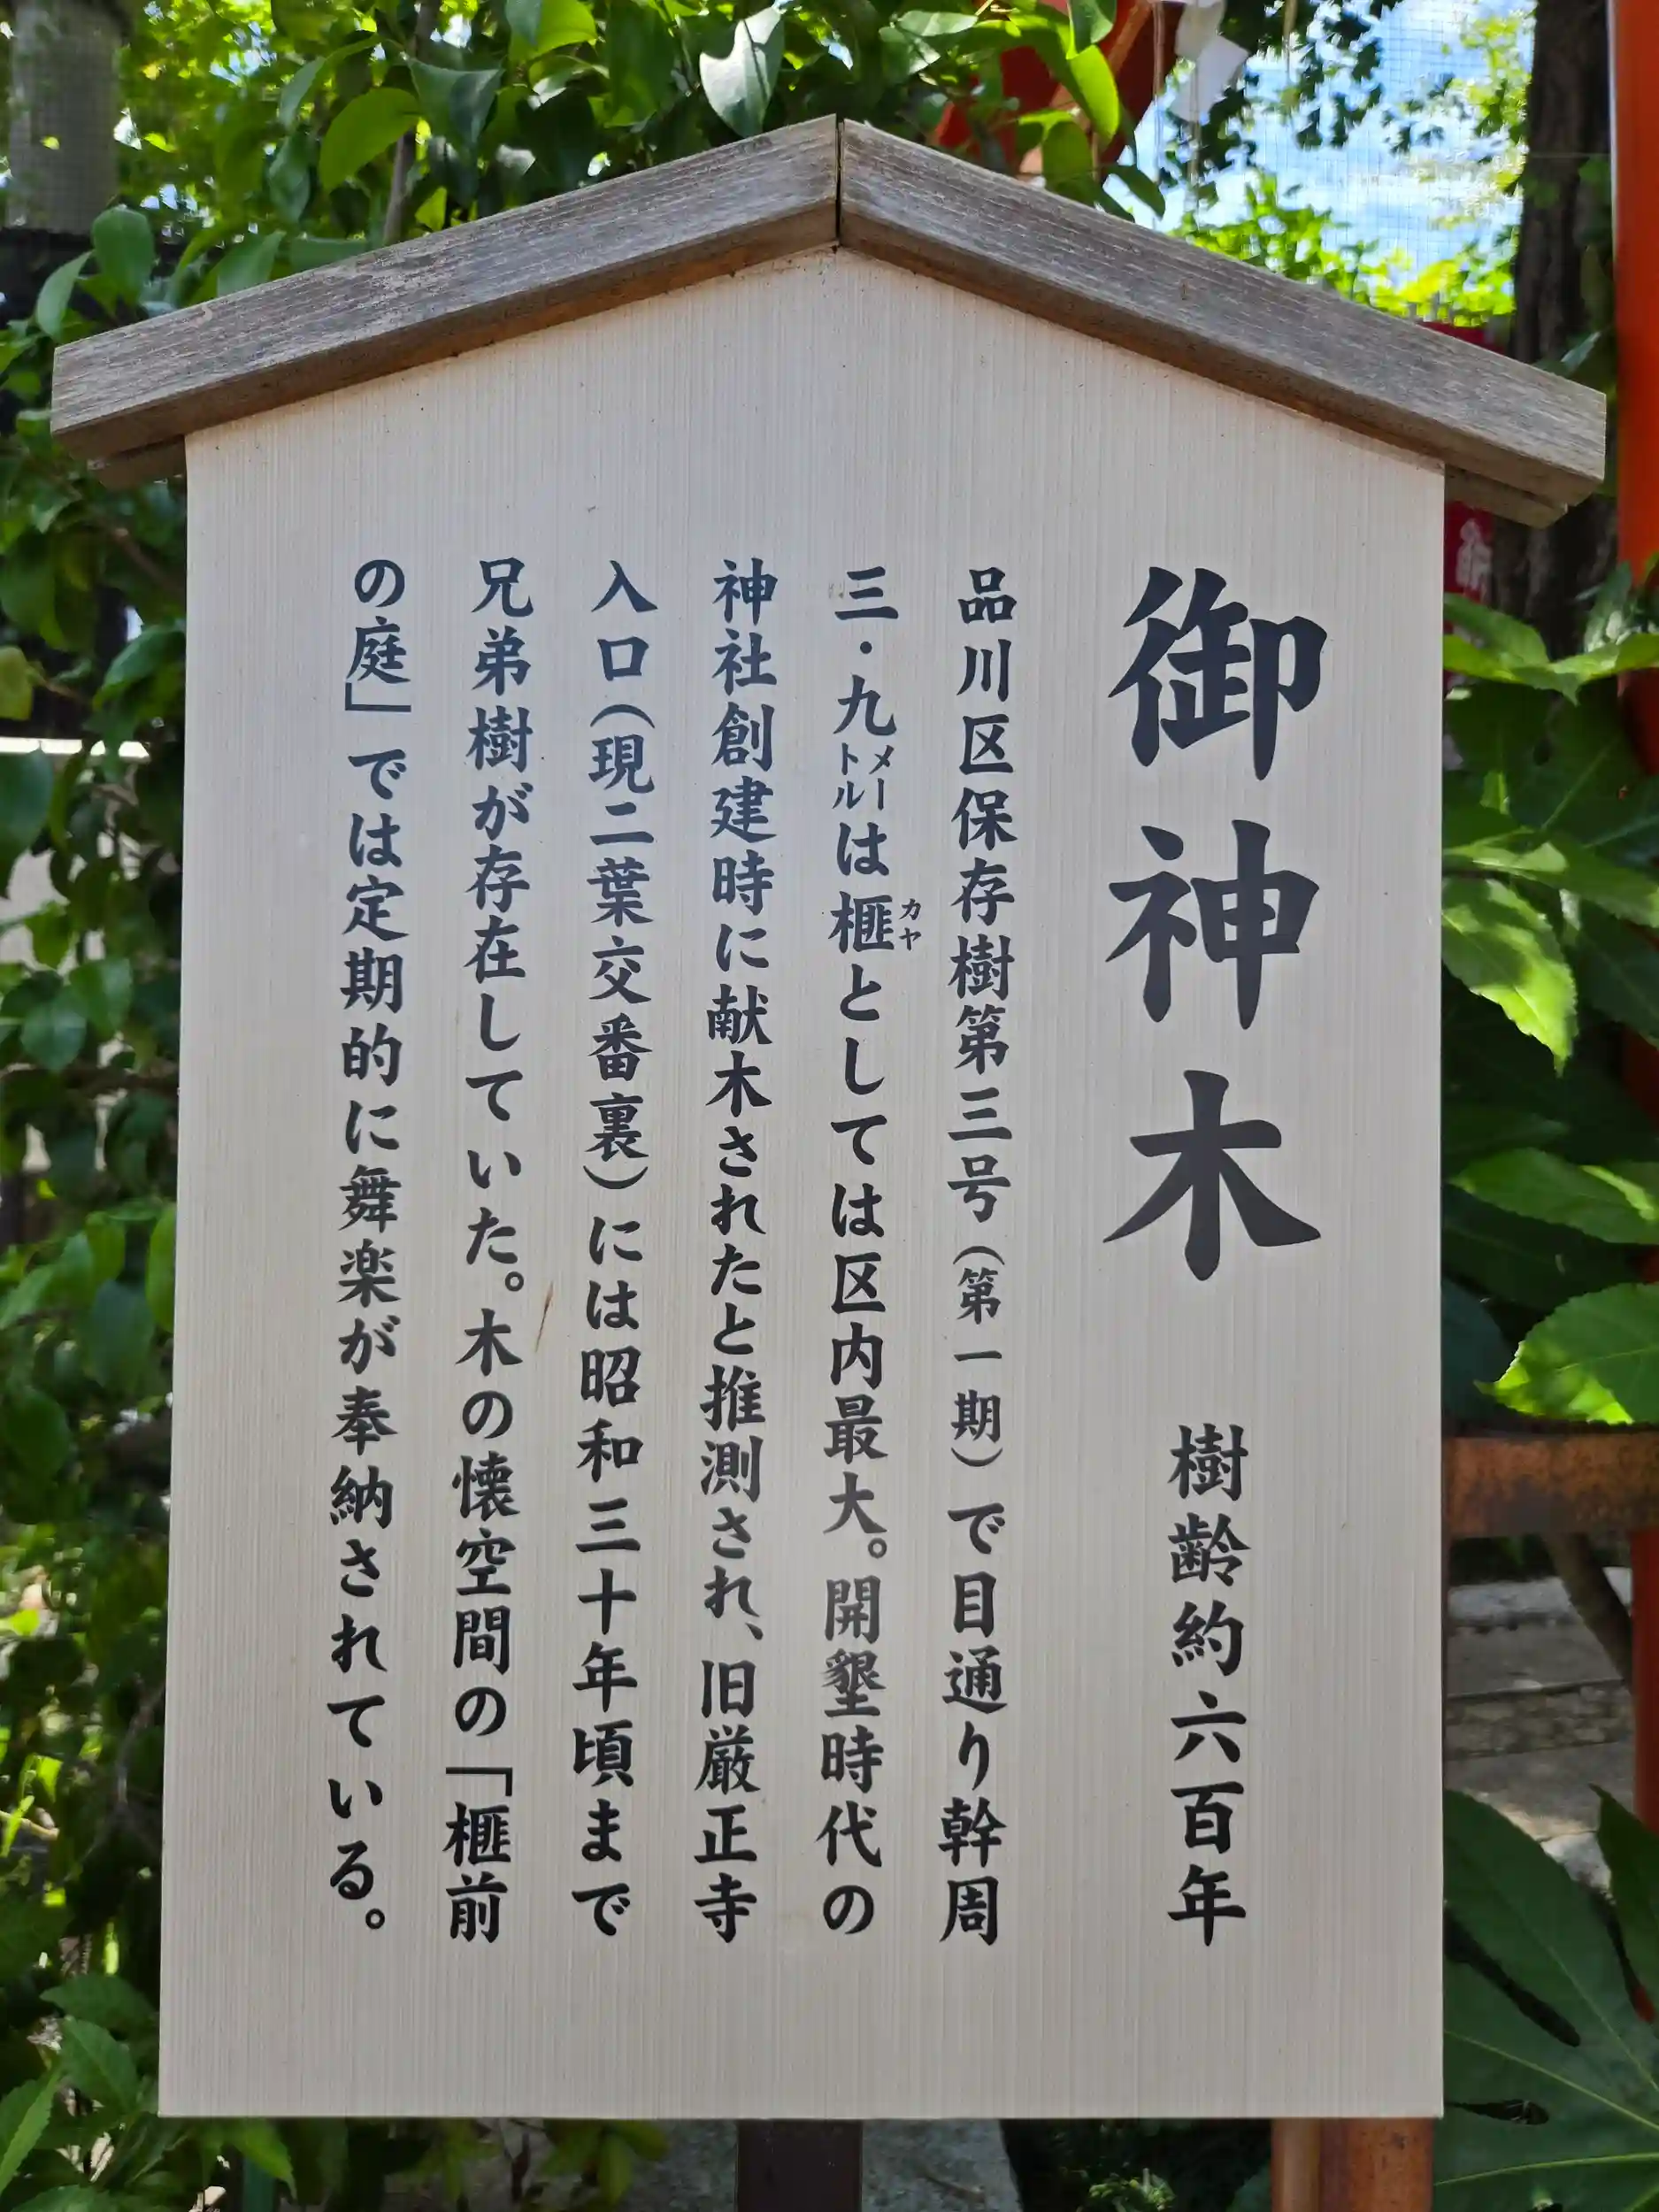 御神木　樹齢約六百年
品川区保存樹第三号（第一期）で目通り幹周
三・九メートルは榧カヤとしては区内最大。開墾時代の
神社創建時に献木されたと推測され、旧厳正寺
入口（現二葉交番裏）には昭和三十年頃まで
兄弟樹が存在していた。木の懐空間の「榧前
の庭」では定期的に舞楽が奉納されている。